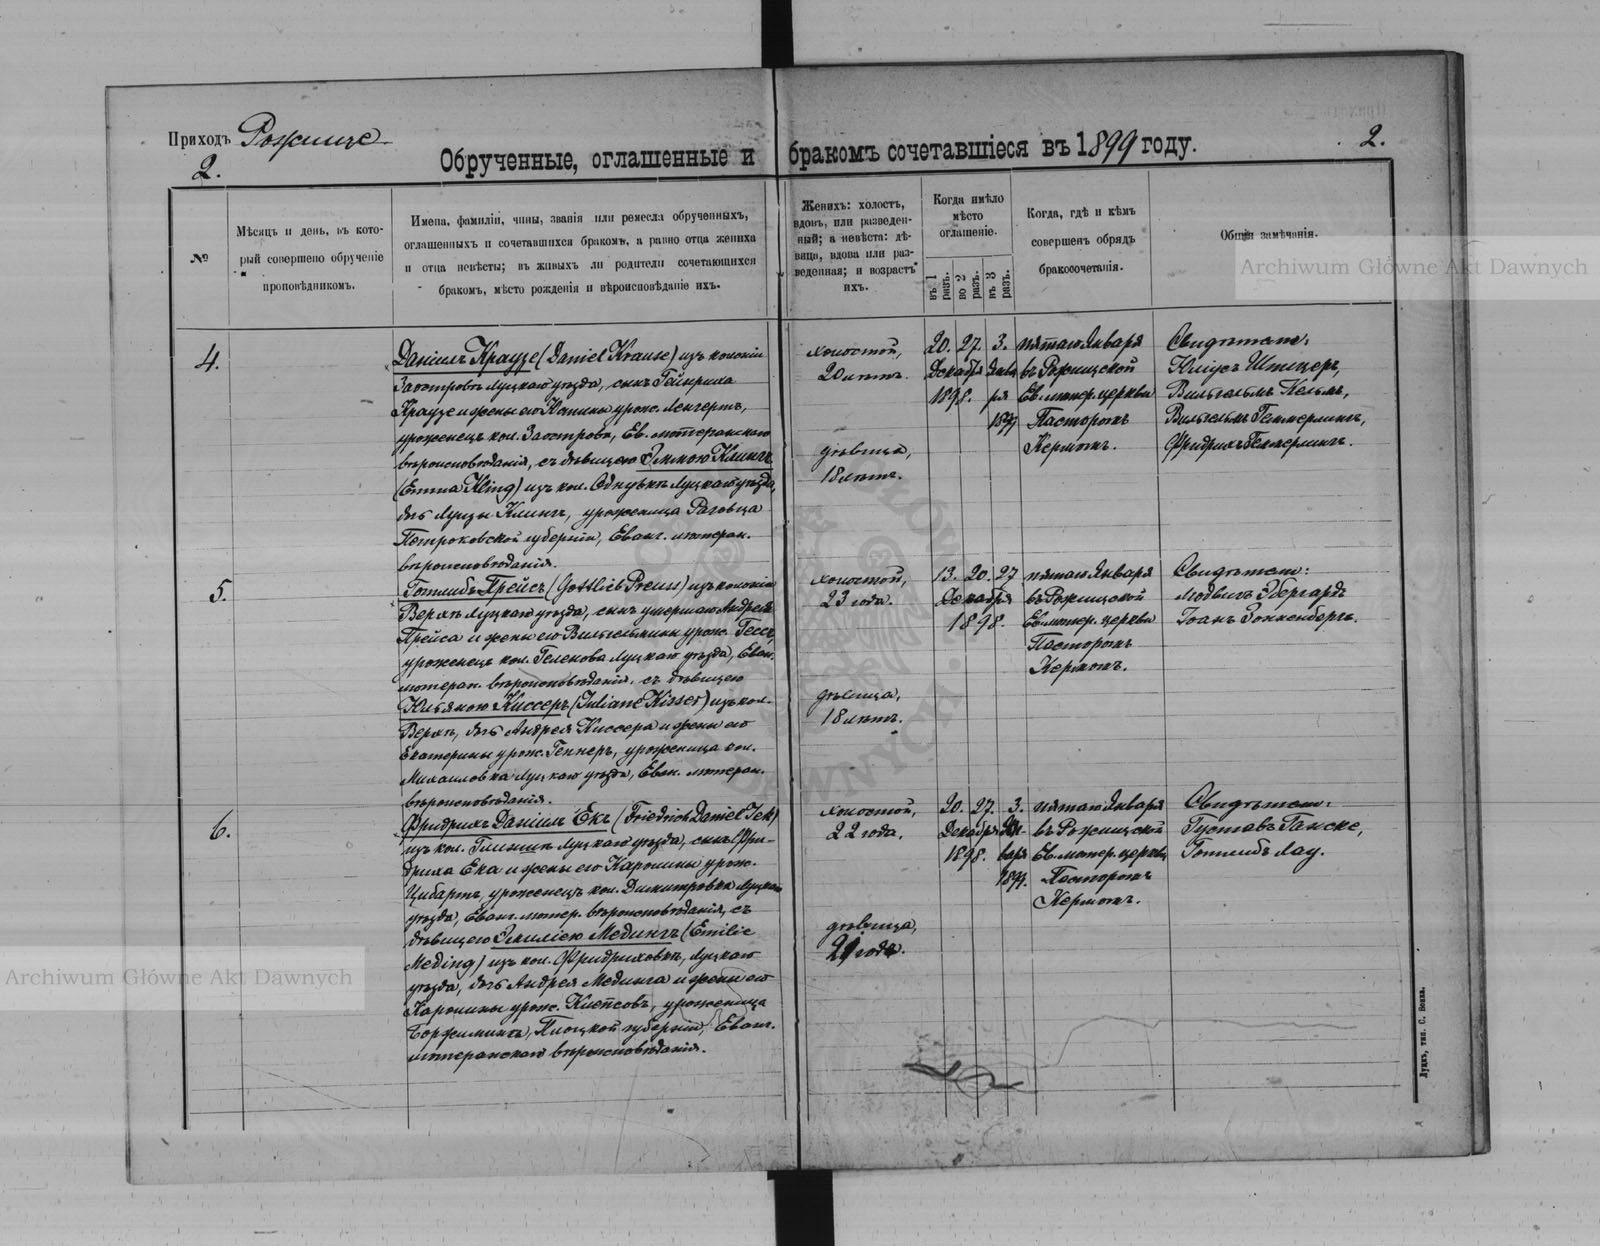 Приходъ Рожище
Обрученные, оглашенные и бракомъ сочетавшіеся въ 1899 году.
2.
2.
№
Мѣсяцъ и день, въ кото-
рый совершено обрученіе
проповѣдникомъ.
Имена, фамиліи, чины, званія или ремесла обрученныхъ,
оглашенныхъ и сочетавшихся бракомъ, а равно отца жениха
и отца невѣсты; въ живыхъ ли родители сочетающихся
бракомъ, мѣсто рожденія и вѣроисповѣданіе ихъ.
Женихъ: холостъ,
вдовъ, или разведен-
ный; а невѣста: дѣ-
вица, вдова или раз-
веденная; и возрастъ
ихъ.
Когда имѣло
мѣсто
оглашеніе.
въ 1 разъ.
во 2 разъ.
въ 3 разъ.
Когда, гдѣ и кѣмъ
совершенъ обрядъ
бракосочетанія.
Общія замѣчанія.
Archiwum Główne Akt Dawnych
4.
Даніилъ Краузе (Daniel Krause) изъ колоніи
Заостровъ Луцкаго уѣзда, сынъ Гейнриха
Краузе и жены его урож.
уроженецъ кол. Заостровъ, Ев. лютеранскаго
вѣроисповѣданія, съ дѣвицею Эммою Клингъ
(Emma Kling) изъ кол. Луцкаго уѣзда,
дочь Луизы Клингъ, уроженица
Петроковской губерніи, Еванг. лютеран.
вѣроисповѣданія.
холостой,
20 лѣтъ.
дѣвица,
18 лѣтъ.
20. 27. 3.
Декабря Янва
1898. ря
1899
пятаго Января
въ Рожищской
Ев. лютер. церкви
Пасторомъ
Кермомъ.
Свидѣтели:
Юліусъ
Вильгельмъ
Вильгельмъ Геммерлингъ,
Фридрихъ Геммерлингъ.
5.
Готлибъ Прейсъ (Gottlieb Preuss) изъ колоніи
Верхъ Луцкаго уѣзда, сынъ умершаго Андрея
Прейса и жены его Вильгельмины урож.
уроженецъ кол. Геленова Луцкаго уѣзда, Еван.
лютеран. вѣроисповѣданія, съ дѣвицею
Юльяною Киссеръ (Juliane Kisser) изъ кол.
Верхъ, дочь Андрея Киссера и жены его
Екатерины урож. Геннеръ, уроженица кол.
Михаиловка Луцкаго уѣзда, Еван. лютеран.
вѣроисповѣданія.
холостой,
23 года.
дѣвица,
18 лѣтъ.
13. 20. 27
Декабря
1898.
пятаго Января
въ Рожищской
Ев. лютер. церкви
Пасторомъ
Кермомъ.
Свидѣтели:
Людвигъ Эбергардъ
Іоанъ Зонненбергъ.
6.
Фридрихъ Даніилъ Екъ (Friedrich Daniel Jek)
изъ кол. Луцкаго уѣзда, сынъ Фри-
дриха Ека и жены его Каролины урож.
Цибартъ, уроженецъ кол. Димитровка Луцкаго
уѣзда, Еванг. лютер. вѣроисповѣданія, съ
дѣвицею Эмиліею Медингъ (Emilie
Meding) изъ кол. Фридриховка, Луцкаго
уѣзда, дочь Андрея Мединга и жены его
Каролины урож. уроженица
Плоцкой губерніи, Еванг.
лютеранскаго вѣроисповѣданія.
холостой,
22 года.
дѣвица,
21 года.
20. 27. 3.
Декабря Ян-
1898. варя
1899.
пятаго Января
въ Рожищской
Ев. лютер. церкви
Пасторомъ
Кермомъ.
Свидѣтели:
Густавъ Ганске,
Готлибъ Лау.
Archiwum Główne Akt Dawnych
Луцкъ, тип. С. Бонка.